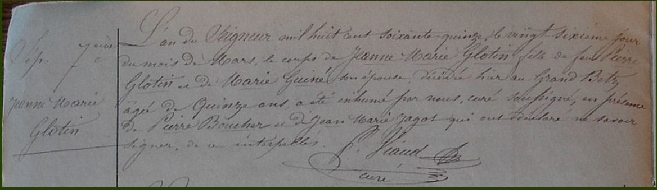 Sép. 7ᵉ
Jeanne Marie
Glotin
L'an du Seigneur mil huit cent soixante-quinze, le vingt sixième jour
du mois de Mars, le corps de Jeanne Marie Glotin fille de feu Pierre
Glotin et de Marie Guéné, son épouse, décédée hier au Grand Betz
âgé de Quinze ans a été inhumé par nous, curé soussigné, en présence
de Pierre Boucher et de Jean Marie Jagot qui ont déclaré ne savoir
signer, de ce interpellés.
P. Hiaud
curé